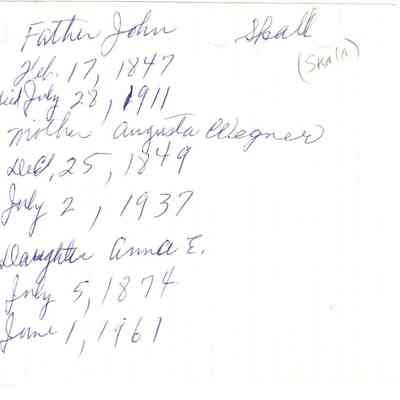 Father John Skall
(Skala)
Feb. 17, 1847
died July 28, 1911
Mother Augusta Wegner
Dec, 25, 1849
July 2, 1937
Daughter Anna E.
July 5, 1874
June 1, 1961